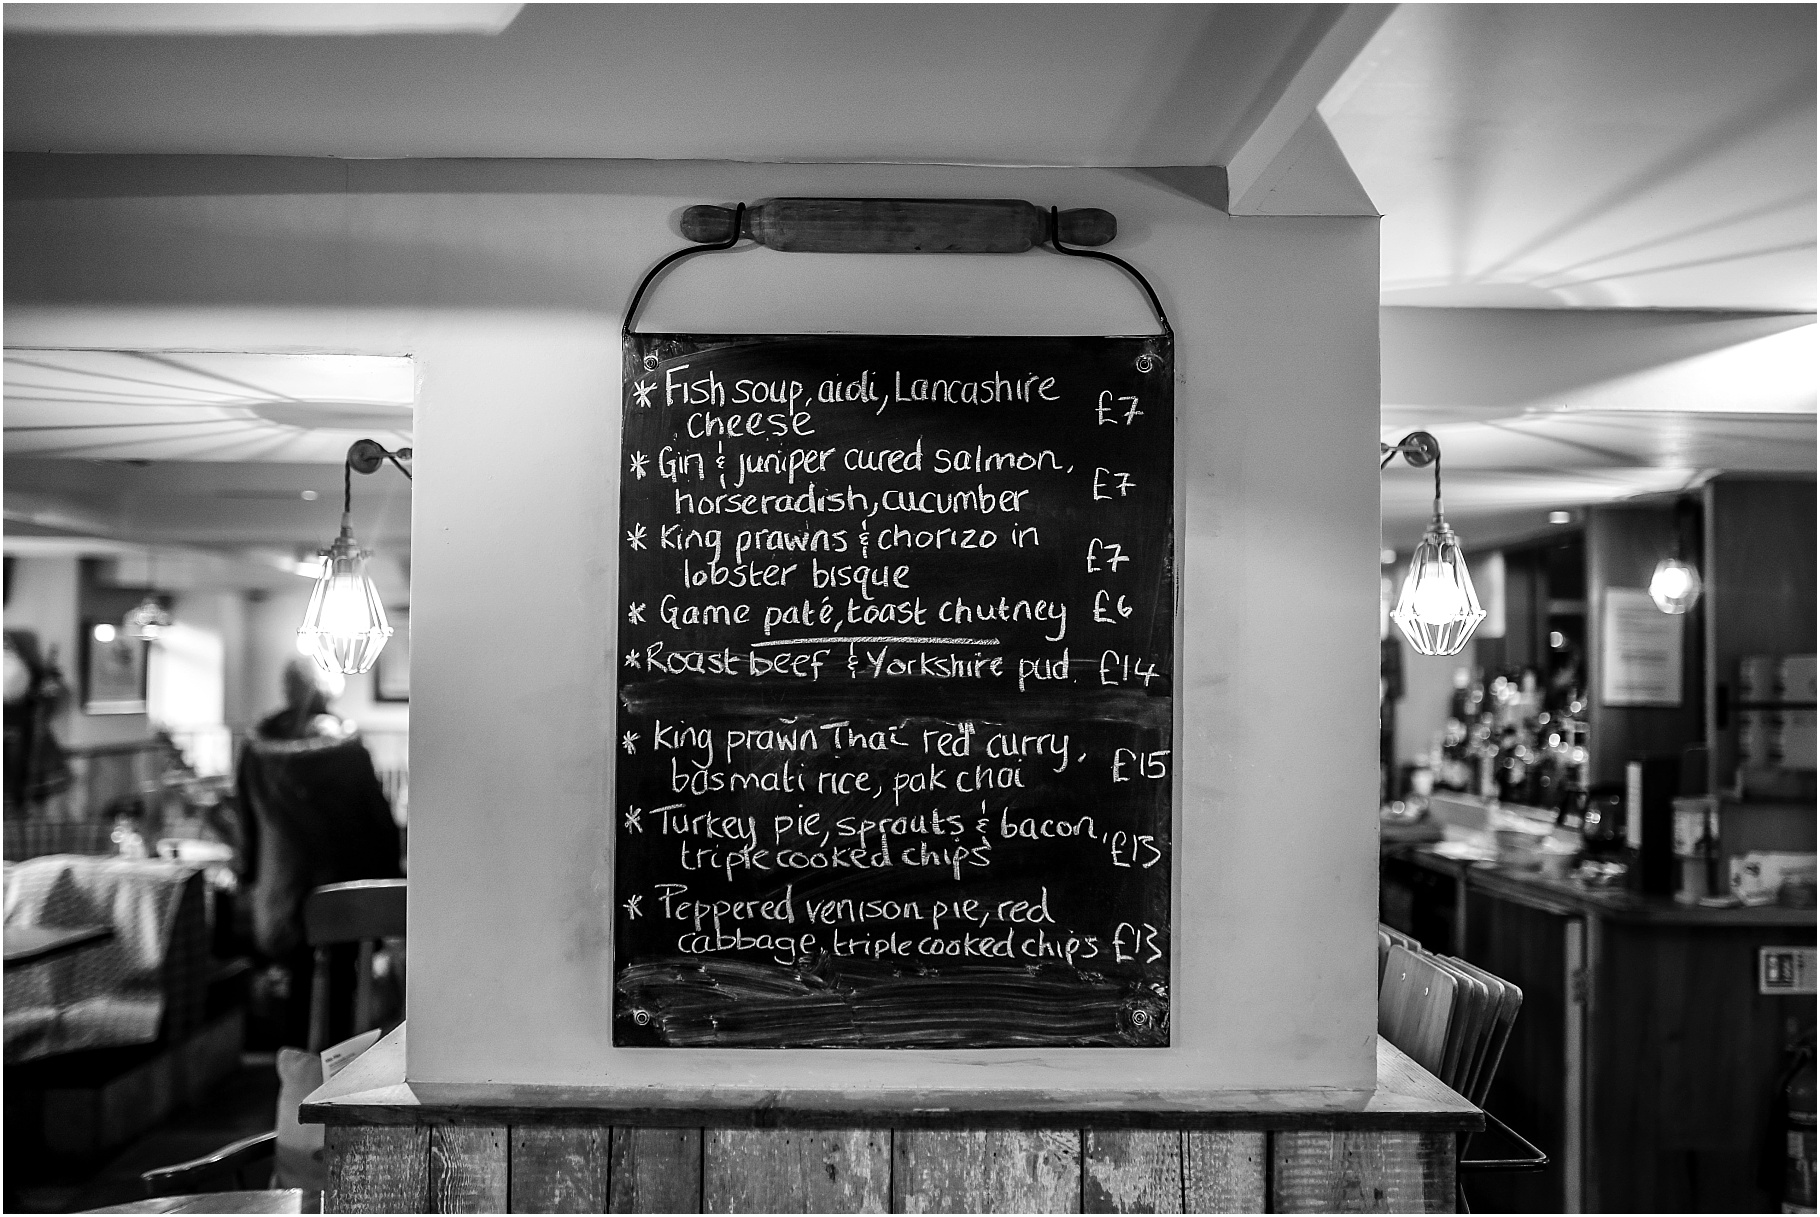 * Fish soup, aioli, Lancashire
cheese £7
* Gin & juniper cured salmon,
horseradish, cucumber £7
* King prawns & chorizo in
lobster bisque £7
* Game paté, toast chutney £6
* Roast beef & Yorkshire pud. £14
* King prawn Thai red curry,
basmati rice, pak choi £15
* Turkey pie, sprouts & bacon,
triple cooked chips £13
* Peppered venison pie, red
cabbage, triple cooked chips £13